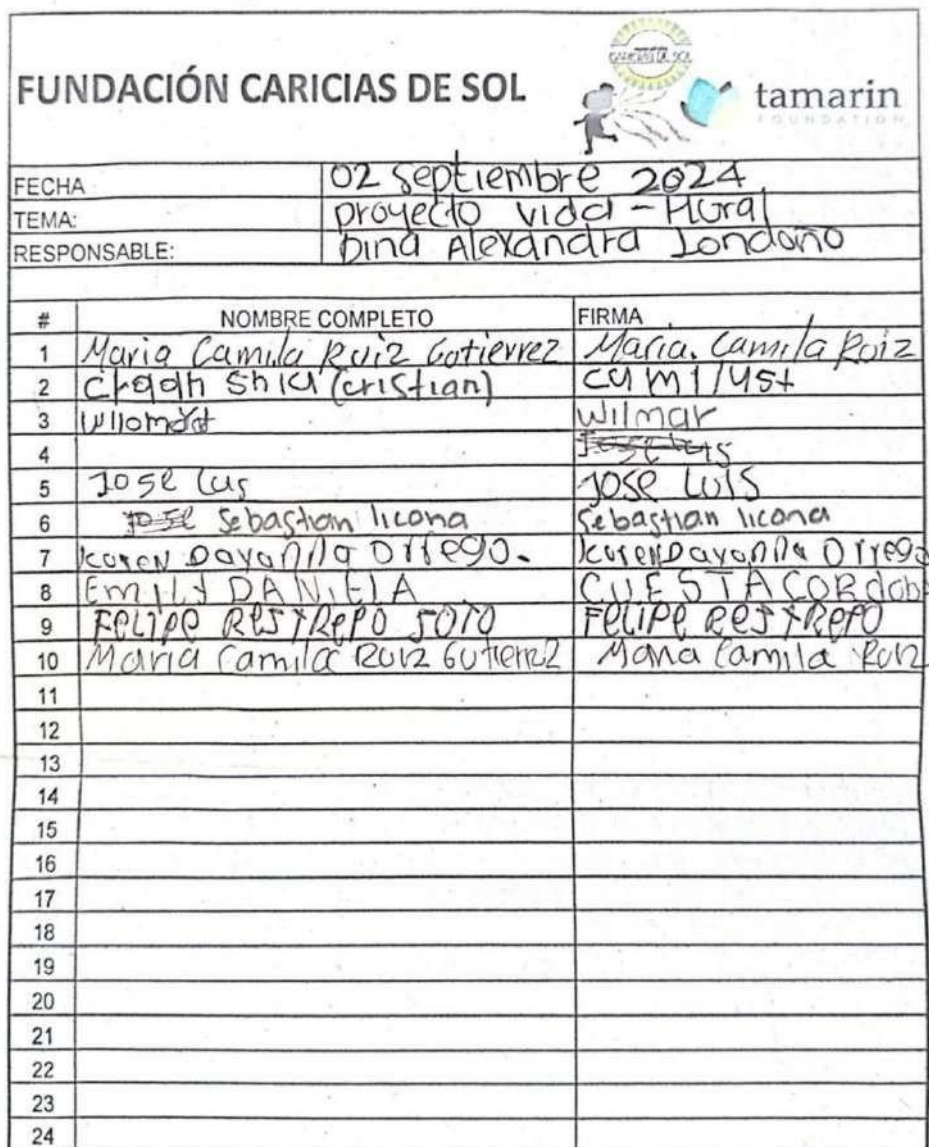 CARICIAS DE SOL
FUNDACIÓN CARICIAS DE SOL
tamarin
FOUNDATION
FECHA 02 septiembre 2024
TEMA: proyecto vida - Mural
RESPONSABLE: Dina Alexandra Londoño
# NOMBRE COMPLETO FIRMA
1 Maria Camila Ruiz Gutierrez Maria. Camila Ruiz
2 (cristian)
3 Wilmar
4 Jose Luis
5 Jose Lus JOSE LUIS
6 Jose Sebastian licona Sebastian licona
7 Karen Dayanna Orrego. Karen Dayanna Orrego
8 Emily DANIELA CUESTA CORdoba
9 Felipe RESTRepo SOTO Felipe RESTRepo
10 Maria Camila Ruiz Gutierrez Maria Camila Ruiz
11
12
13
14
15
16
17
18
19
20
21
22
23
24